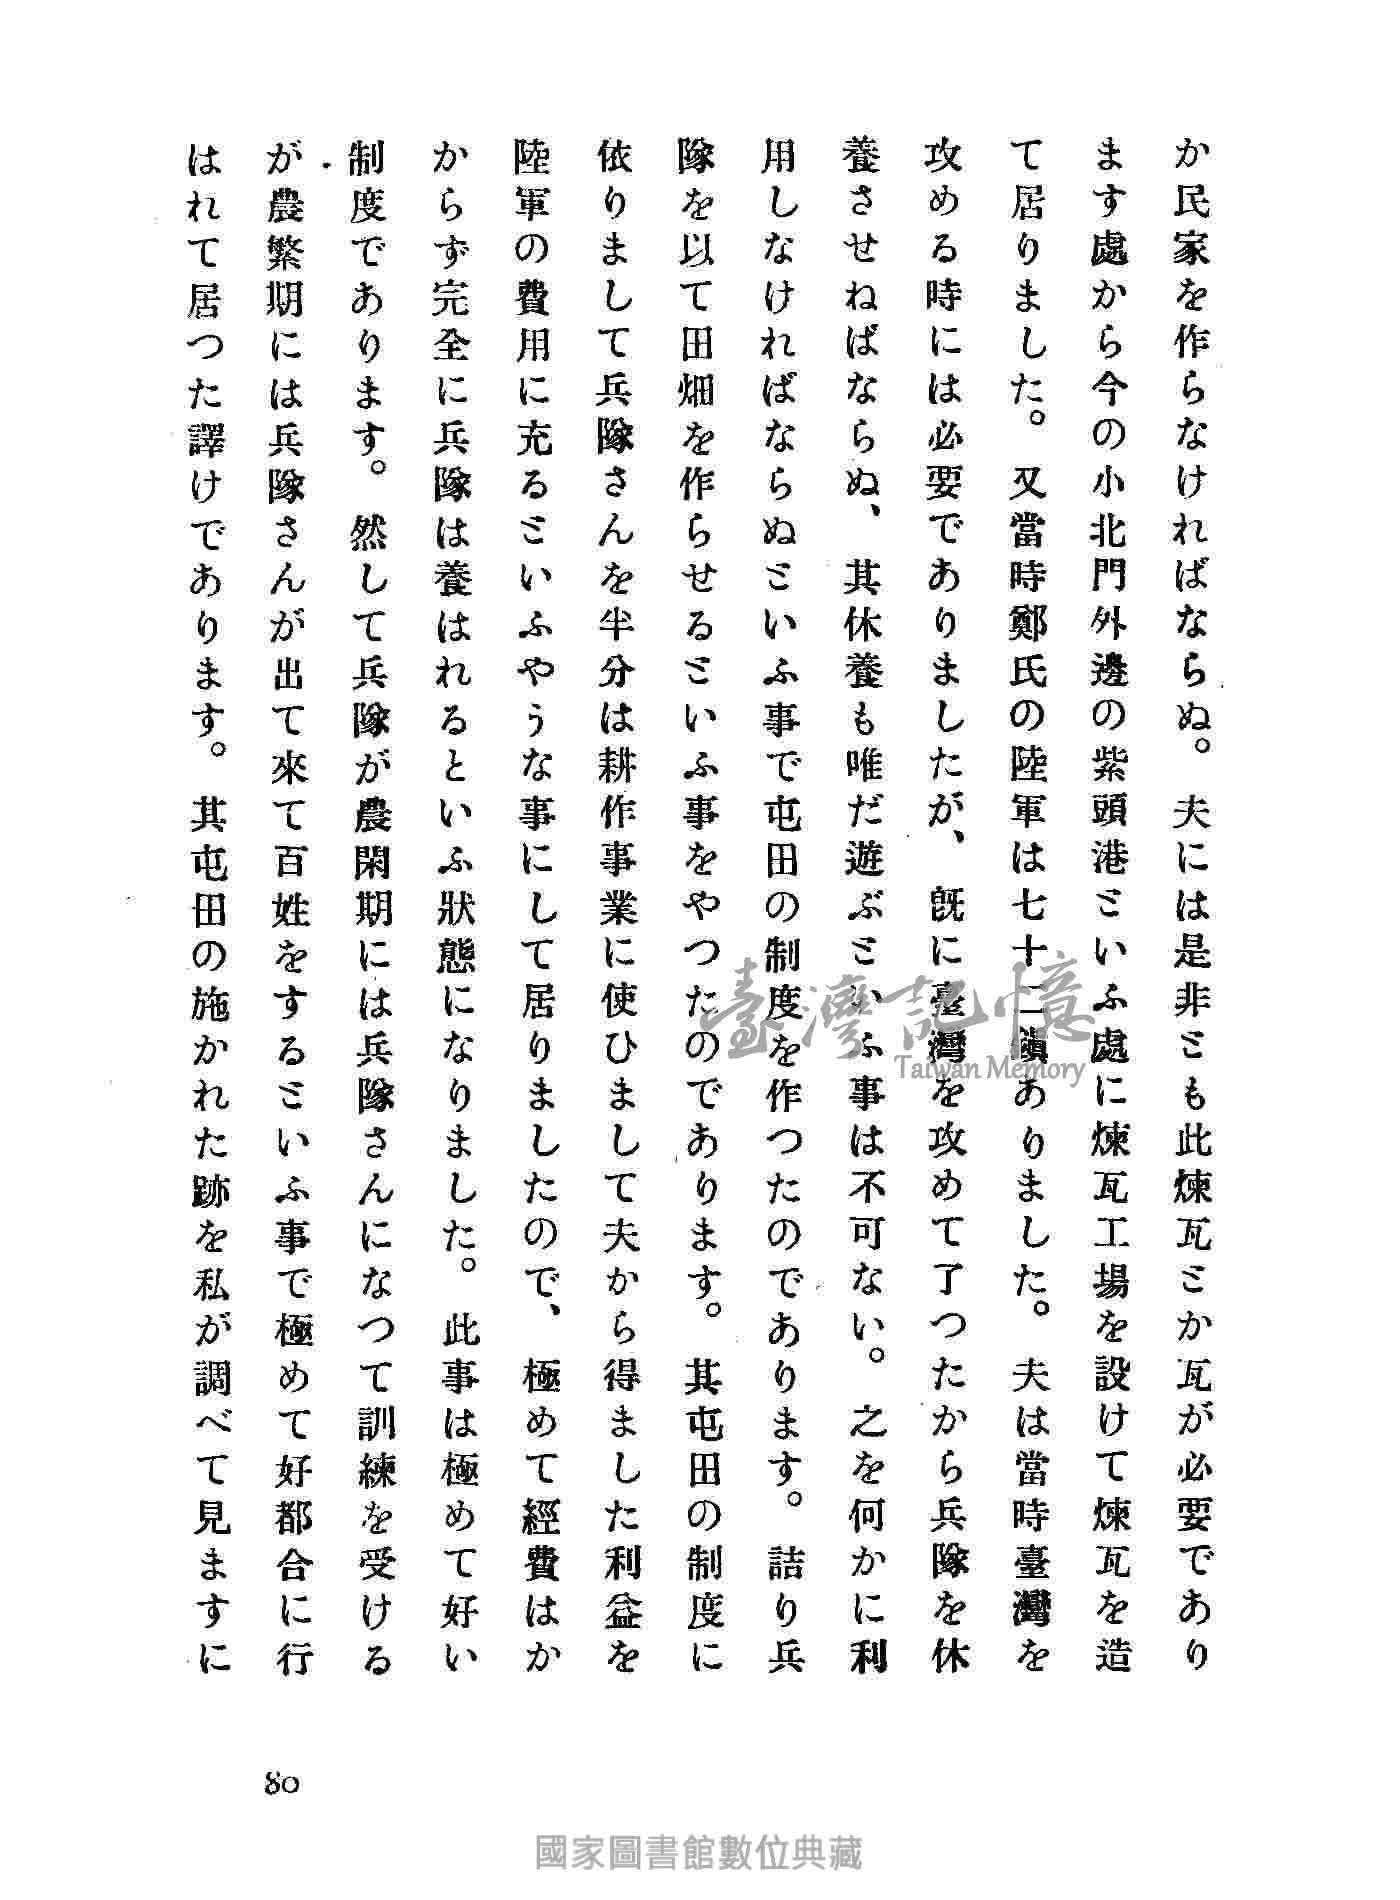 か民家を作らなければならぬ。夫には是非ミも此煉瓦ミか瓦が必要であり
ます處から今の小北門外邊の紫頭港ミいふ處に煉瓦工場を設けて煉瓦を造
て居りました。又當時鄭氏の陸軍は七十二鎭ありました。夫は當時臺灣を
攻める時には必要でありましたが、旣に臺灣を攻めて了つたから兵隊を休
養させねばならぬ、其休養も唯だ遊ぶミいふ事は不可ない。之を何かに利
用しなければならぬミいふ事で屯田の制度を作つたのであります。詰り兵
隊を以て田畑を作らせるミいふ事をやつたのであります。其屯田の制度に
依りまして兵隊さんを半分は耕作事業に使ひまして夫から得ました利益を
陸軍の費用に充るミいふやうな事にして居りましたので、極めて經費はか
からず完全に兵隊は養はれるといふ狀態になりました。此事は極めて好い
制度であります。然して兵隊が農閑期には兵隊さんになつて訓練を受ける
が農繁期には兵隊さんが出て來て百姓をするミいふ事で極めて好都合に行
はれて居つた譯けであります。其屯田の施かれた跡を私が調べて見ますに
80
臺灣記憶
Taiwan Memory
國家圖書館數位典藏